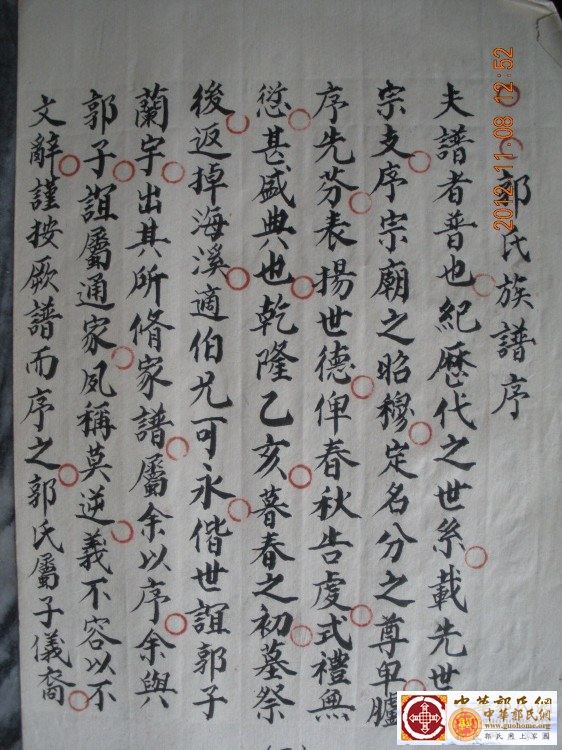 郭氏族譜序
夫譜者普也紀歷代之世系載先世
宗支序宗廟之昭穆定名分之尊卑臚
序先芬表揚世德俾春秋告虔式禮無
愆甚盛典也乾隆乙亥暮春之初墓祭
後返掉海溪適伯兄可永偕世誼郭子
蘭宇出其所脩家譜屬余以序余與
郭子誼屬通家夙稱莫逆義不容以不
文辭謹按厥譜而序之郭氏屬子儀裔
2012-11-08 12:52
中華郭氏網
www.guohome.org
郭氏網上家園